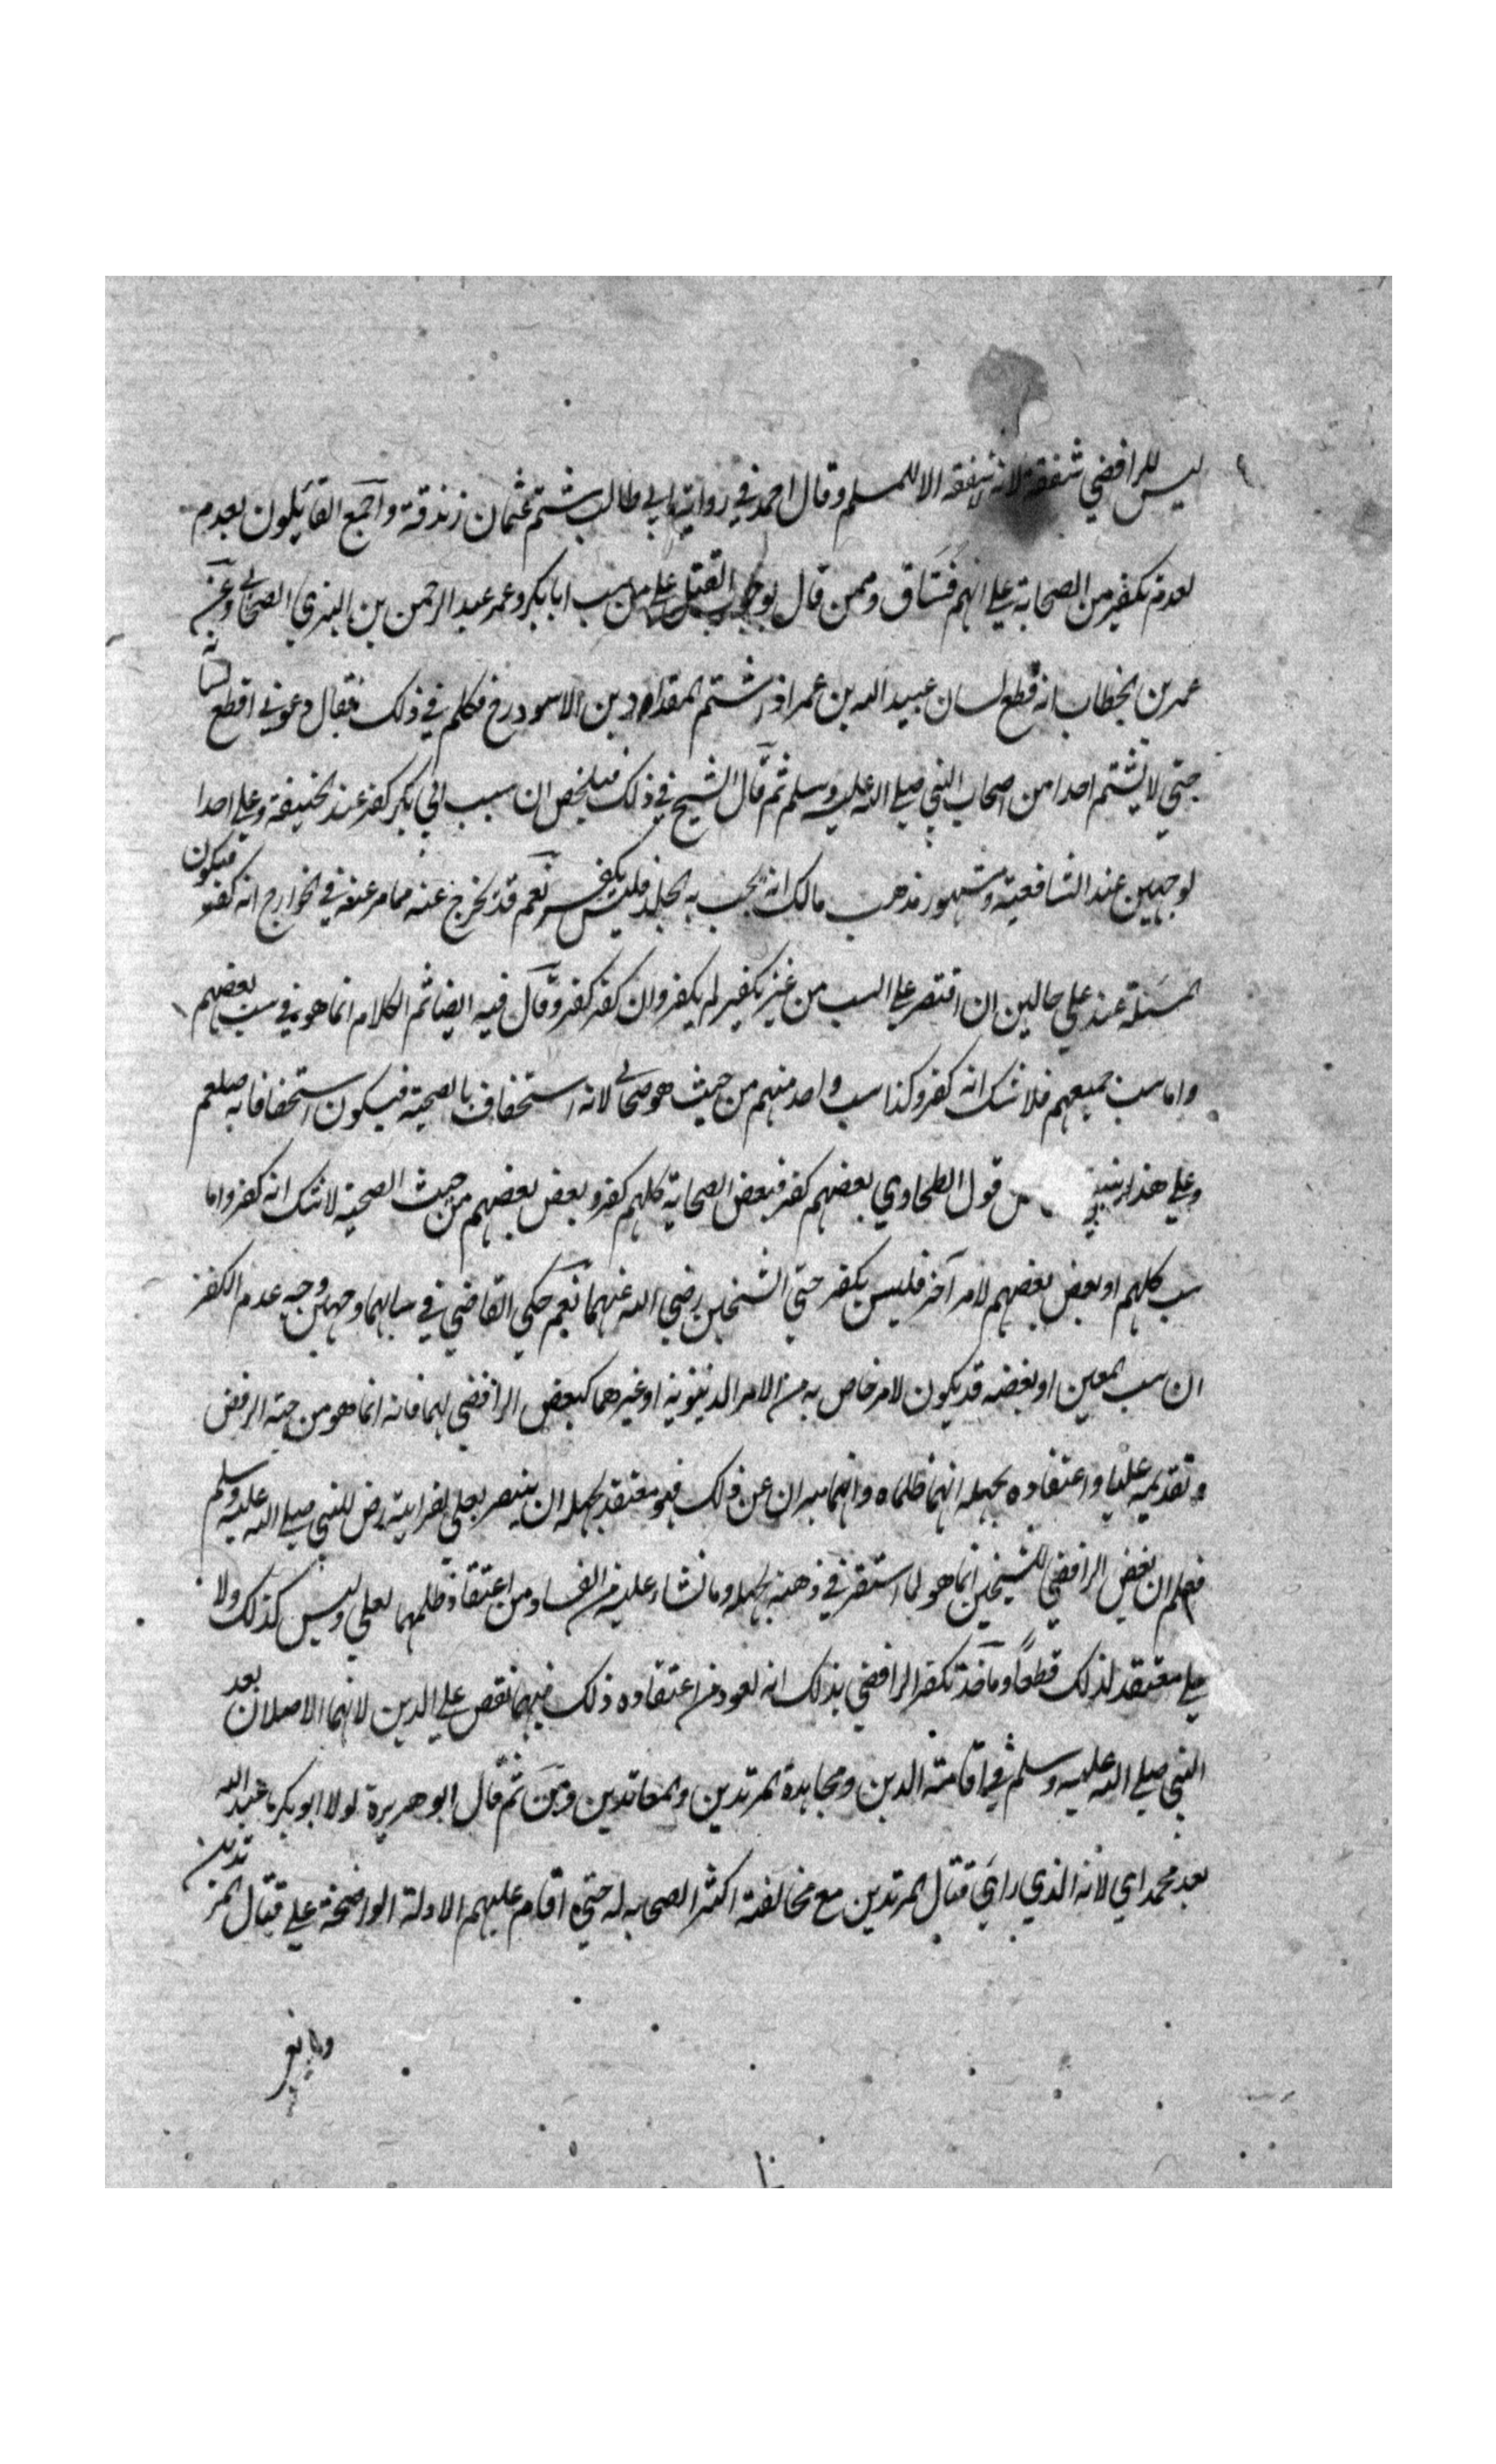 ليس للرافضي شفعة لانه لا شفعة الا للمسلم وقال احمد في رواية ابي طالب شتم عثمان زندقة واجمع القائلون بعدم
لعدم تكفير من الصحابة علي انهم فساق وممن قال بوجوب القتل علي من سب ابا بكر وعمر عبد الرحمن بن ابزي الصحابي وعن
عمر بن الخطاب انه قطع لسان عبيد الله بن عمر اذ شتم المقداد بن الاسود رض فكلم في ذلك فقال دعوني اقطع لسانه
حتي لا يشتم احدا من اصحاب النبي صلي الله عليه وسلم ثم قال الشيخ في ذلك فتلخص ان سب ابي بكر كفر عند الحنيفة وعلي احدا
لوجهين عند الشافعية ومشهور مذهب مالك انه يجب به الجلد فليس بكفر نعم قد يخرج عنه مما مر عنه في الخوارج انه كفر فيكون
المسئلة عند علي حالين ان اقتصر علي السب من غير تكفير لم يكفر وان كفر كفر وقال فيه ايضا ثم الكلام انما هو في سب بعضهم
واما سب جميعهم فلا شك انه كفر وكذا سب واحد منهم من حيث هو صحابي لانه استخفاف بالصحبة فيكون استخفافا به صلعم
وعلي هذا ينبغي قول الطحاوي بعضهم كفر فبغض الصحابة كلهم كفر وبغض بعضهم من حيث الصحبة لا شك انه كفر واما
سب كلهم او بغض بعضهم لامر آخر فليس بكفر حتي الشيخين رضي الله عنهما نعم حكي القاضي في سابهما وجهين وجه عدم الكفر
ان سب المعين او بغضه قد يكون لامر خاص به من الامر الدنيوية او غيرهما كبغض الرافضي لهما فانه انما هو من جهة الرفض
وتقديمه عليا واعتقاده بجهله انهما ظلماه وانهما مبران عن ذلك فهو معتقد بجهله ان ينتصر بعلي لقرابته رض للنبي صلي الله عليه وسلم
فعلم ان بغض الرافضي للشيخين انما هو لما استقر في ذهنه بجهله وما نشاء عليه من الفساد من اعتقاد ظلمهما لعلي وليس كذلك ولا
علي معتقد لذلك قطعا وماخذ تكفر الرافضي بذلك انه لعود من اعتقاده ذلك فيهما نقص علي الدين لانهما الاصلان بعد
النبي صلي الله عليه وسلم في اقامة الدين ومجاهدة المرتدين والمعاندين ومن ثم قال ابو هريرة لولا ابو بكر ما عبد الله
بعد محمد اي لانه الذي راي قتال المرتدين مع مخالفة اكثر الصحابه له حتي اقام عليهم الادلة الواضحة علي قتال المرتدين